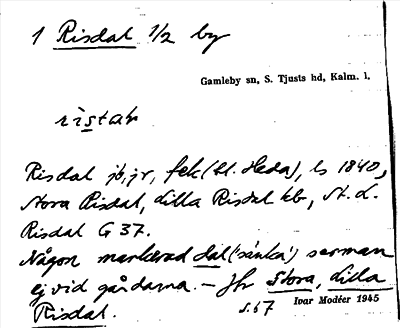 1 Risdal 1/2 by
Gamleby sn, S. Tjusts hd, Kalm. l.
ristah
Risdal jb, jr, fek (bl. Heda), ls 1840,
Stora Risdal, Lilla Risdal kb, St. L.
Risdal G 37.
Någon markerad dal ('sänka') serman
ej vid gårdarna. – Jfr Stora, Lilla
Risdal.
s. 67 Ivar Modéer 1945